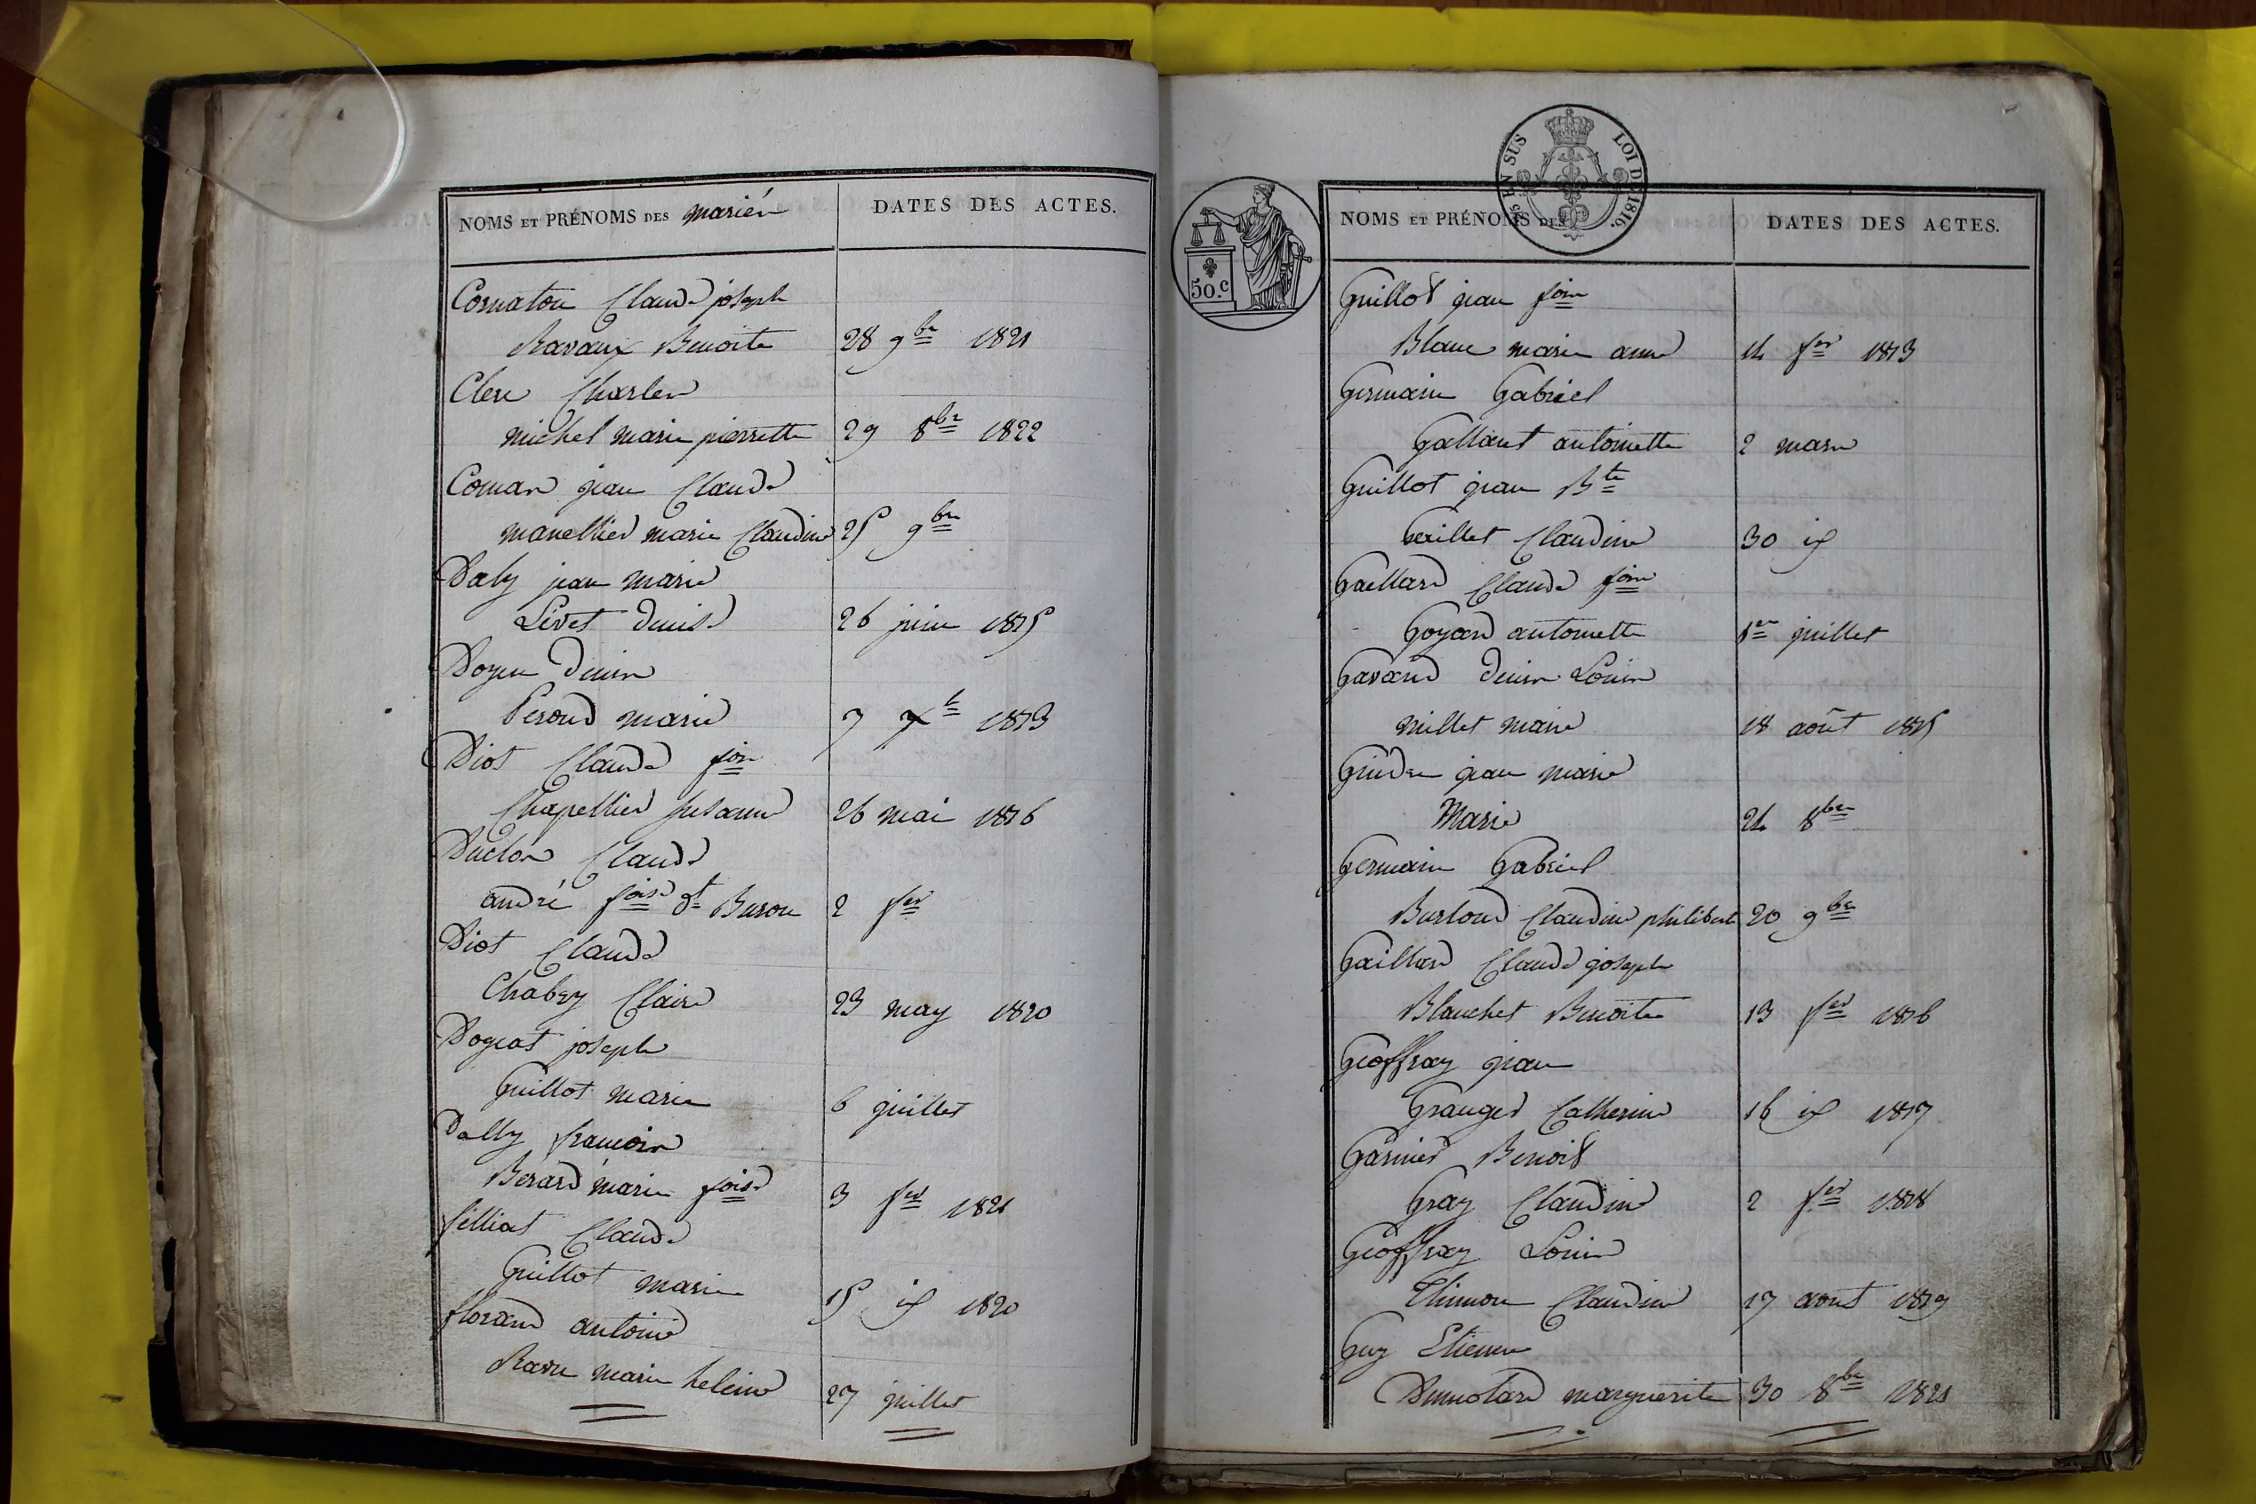 NOMS ET PRÉNOMS DES mariés
DATES DES ACTES.
Cornaton Claude joseph
Ravaux Benoite 28 9bre 1821
Clere Charles
michel marie pierrette 29 8bre 1822
Comas jean Claude
manellier marie Claudine 25 9bre
Daly jean marie
Livet denise 26 juin 1815
Doyen denis
Peroud marie 7 Xbre 1813
Diot Claude fois
Chapellier susanne 26 mai 1816
Duclos Claude
andré foise dt Buron 2 fer
Diot Claude
Chabey Claire 23 may 1820
Dogeat joseph
Guillot marie 6 juillet
Dally francois
Berard marie foise 3 fer 1821
filliat Claude
Guillot marie 15 id 1820
florand antoine
Ravu marie heleine 27 juillet
EN SUS LOI DE 1816.
50.c
NOMS ET PRÉNOMS DES
DATES DES ACTES.
Guillot jean fois
Blanc marie anne 14 fer 1813
Germain Gabriel
Galland antoinette 2 mars
Guillot jean Bte
Claudine 30 id
Gaillard Claude fois
Goyard antoinette 1er juillet
Gavand denis Louis
millet marie 18 août 1815
jean marie
Marie 24 8bre
Germain Gabriel
Burloud Claudine philiberte 20 9bre
Gaillard Claude joseph
Blanchet Benoite 13 fer 1816
Geoffray jean
Granger Catherine 16 id 1817
Garnier Benoit
Gray Claudine 2 fer 1818
Geoffray Louis
Thimon Claudine 17 aout 1819
Guy Etienne
marguerite 30 8bre 1821